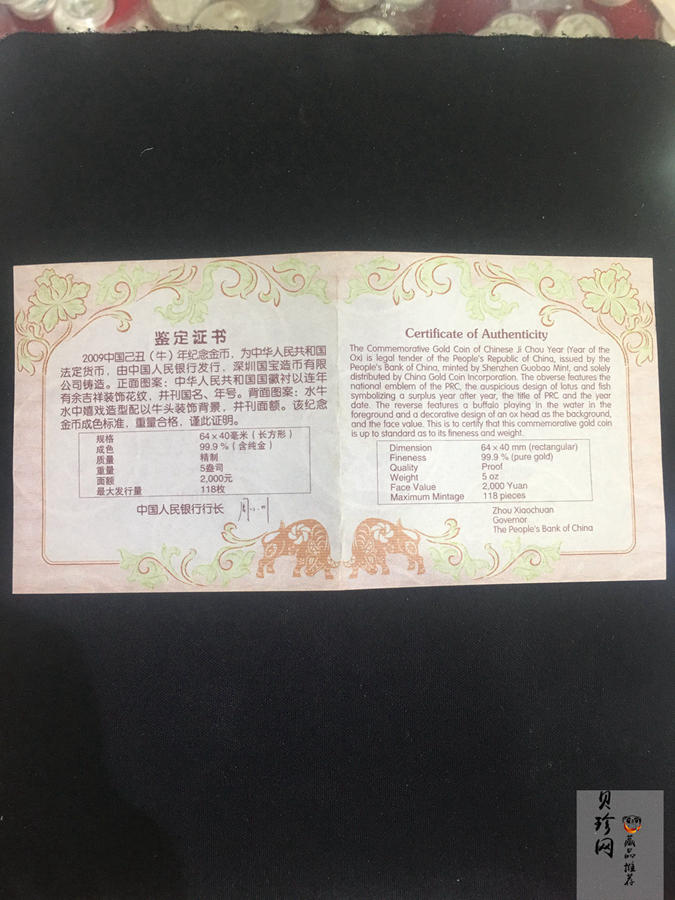 鉴定证书
2009中国己丑（牛）年纪念金币，为中华人民共和国
法定货币，由中国人民银行发行，深圳国宝造币有限
公司铸造。正面图案：中华人民共和国国徽衬以连年
有余吉祥装饰花纹，并刊国名、年号。背面图案：水牛
水中嬉戏造型配以牛头装饰背景，并刊面额。该纪念
金币成色标准，重量合格，谨此证明。
规格 64×40毫米（长方形）
成色 99.9%（含纯金）
质量 精制
重量 5盎司
面额 2,000元
最大发行量 118枚
中国人民银行行长
Certificate of Authenticity
The Commemorative Gold Coin of Chinese Ji Chou Year (Year of the
Ox) is legal tender of the People's Republic of China, issued by the
People's Bank of China, minted by Shenzhen Guobao Mint, and solely
distributed by China Gold Coin Incorporation. The obverse features the
national emblem of the PRC, the auspicious design of lotus and fish
symbolizing a surplus year after year, the title of PRC and the year
date. The reverse features a buffalo playing in the water in the
foreground and a decorative design of an ox head as the background,
and the face value. This is to certify that this commemorative gold coin
is up to standard as to its fineness and weight.
Dimension 64×40 mm (rectangular)
Fineness 99.9% (pure gold)
Quality Proof
Weight 5 oz
Face Value 2,000 Yuan
Maximum Mintage 118 pieces
Zhou Xiaochuan
Governor
The People's Bank of China
贝珍网
藏品推荐